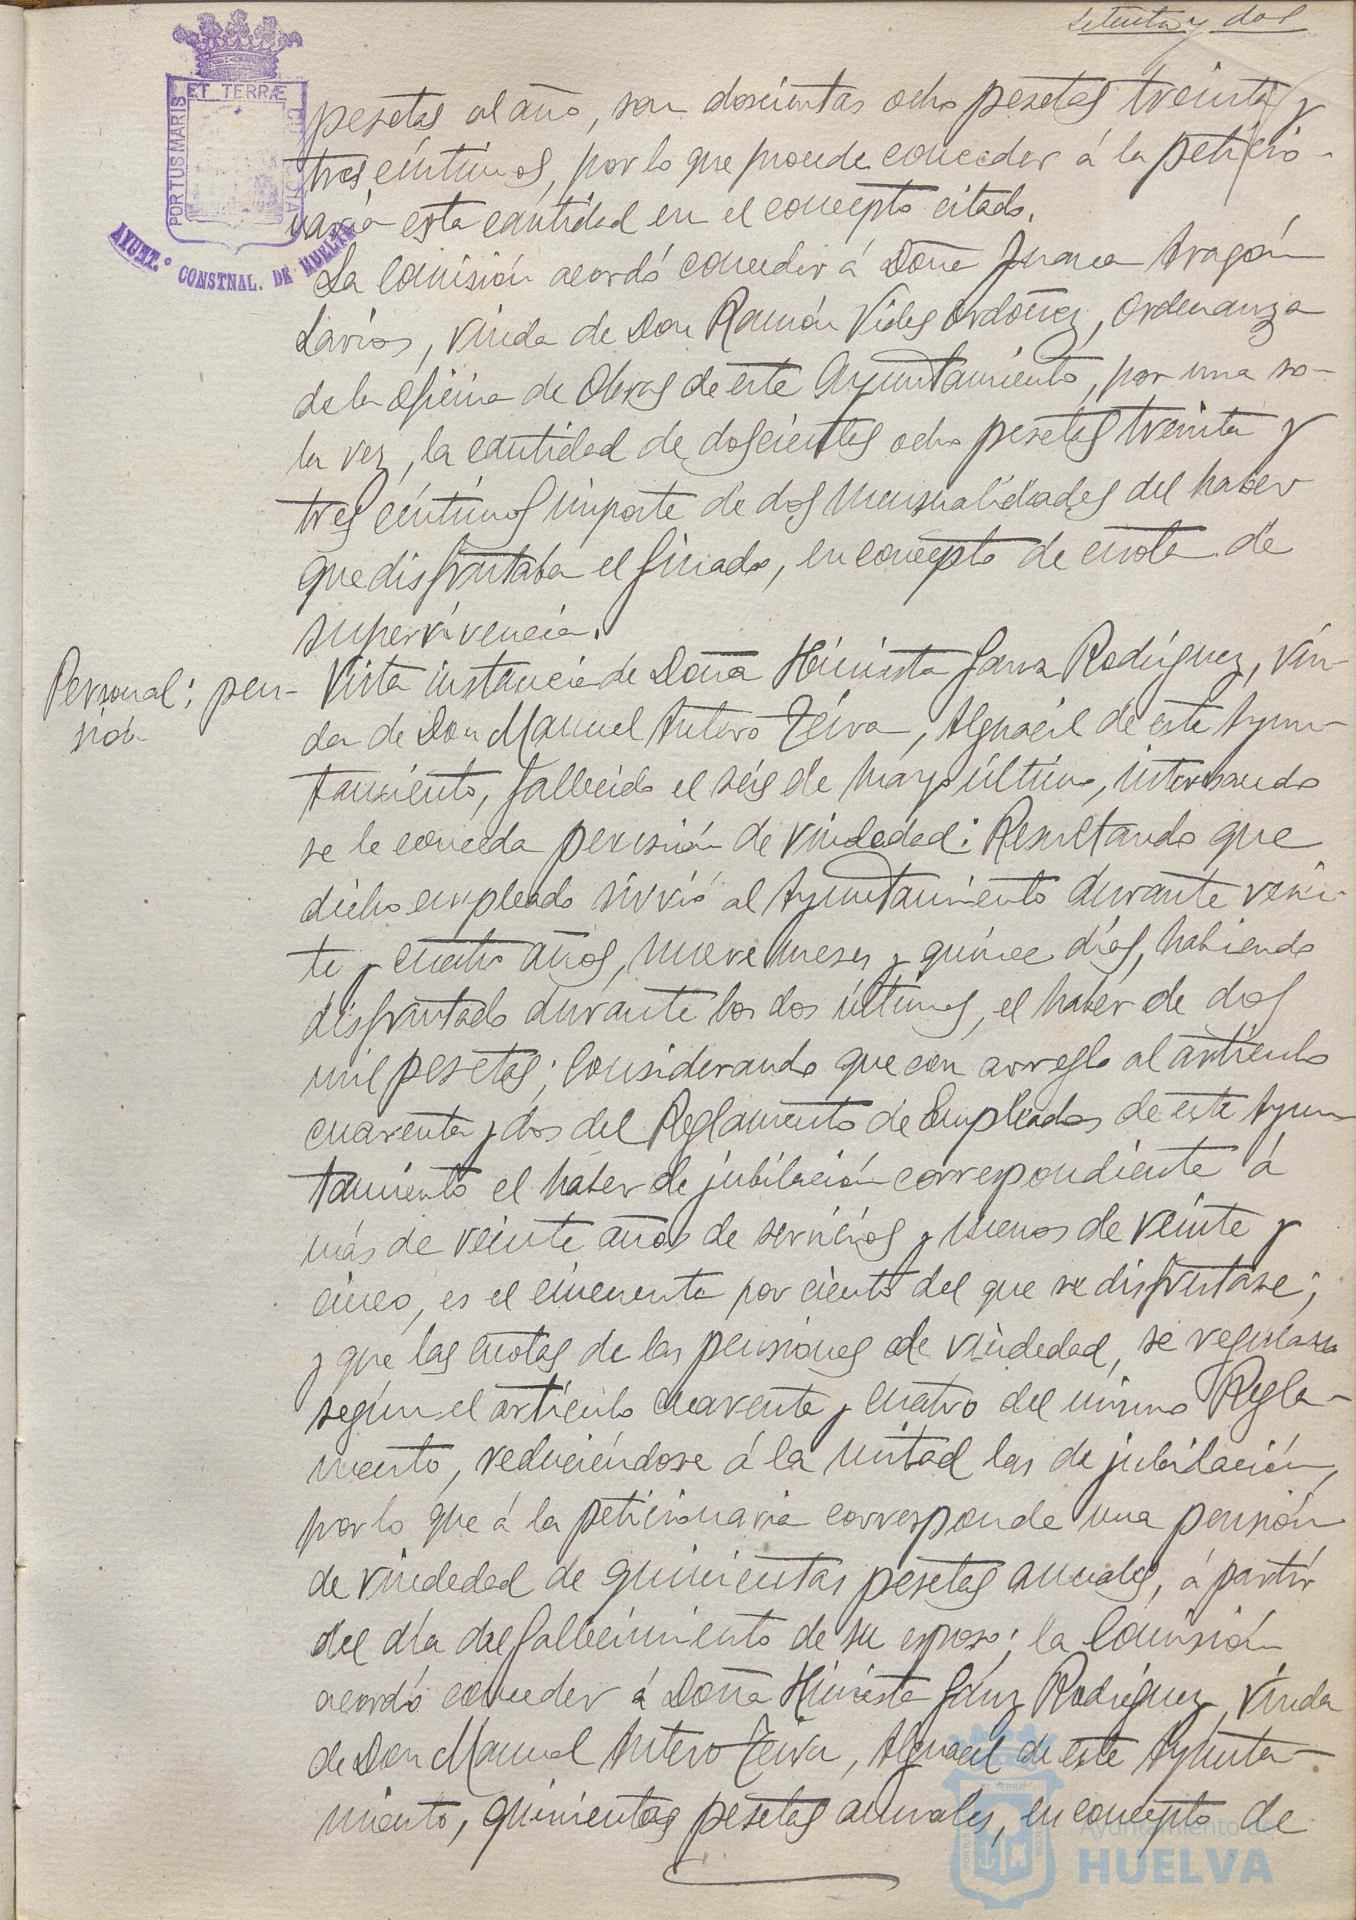 setenta y dos
PORTUS MARIS ET TERRÆ CUSTODIA
AYUNT.º CONSTNAL. DE HUELVA
pesetas al año, son doscientas ocho pesetas treinta y
tres céntimos, por lo que procede conceder á la peticio-
naria esta cantidad en el concepto citado.
La Comisión acordó conceder á Doña Juana Aragón
Larios, viuda de Don Ramón Vides Ordóñez, Ordenanza
de la oficina de Obras de este Ayuntamiento, por una so-
la vez, la cantidad de doscientas ocho pesetas treinta y
tres céntimos importe de dos mensualidades del haber
que disfrutaba el finado, en concepto de cuota de
supervivencia.
Personal: pen-
sión
Vista instancia de Doña Hiniesta Sanz Rodríguez, viu-
da de Don Manuel Antero Leiva, Alguacil de este Ayun-
tamiento, fallecido el seis de mayo último, interesando
se le conceda pensión de viudedad: Resultando que
dicho empleado sirvió al Ayuntamiento durante vein-
te y cuatro años, nueve meses y quince días, habiendo
disfrutado durante los dos últimos, el haber de dos
mil pesetas; Considerando que con arreglo al artículo
cuarenta y dos del Reglamento de Empleados de este Ayun
tamiento el haber de jubilación correspondiente á
más de veinte años de servicios y menos de veinte y
cinco, es el cincuenta por ciento del que se disfrutase;
y que las cuotas de las pensiones de viudedad, se regulan
según el artículo cuarenta y cuatro del mismo Regla-
mento, reduciéndose á la mitad las de jubilación,
por lo que á la peticionaria corresponde una pensión
de viudedad de quinientas pesetas anuales, á partir
del día del fallecimiento de su esposo; la Comisión
acordó conceder á Doña Hiniesta Sánz Rodríguez, viuda
de Don Manuel Antero Leiva, Alguacil de este Ayunta-
miento, quinientas pesetas anuales, en concepto de
Ayuntamiento de
HUELVA